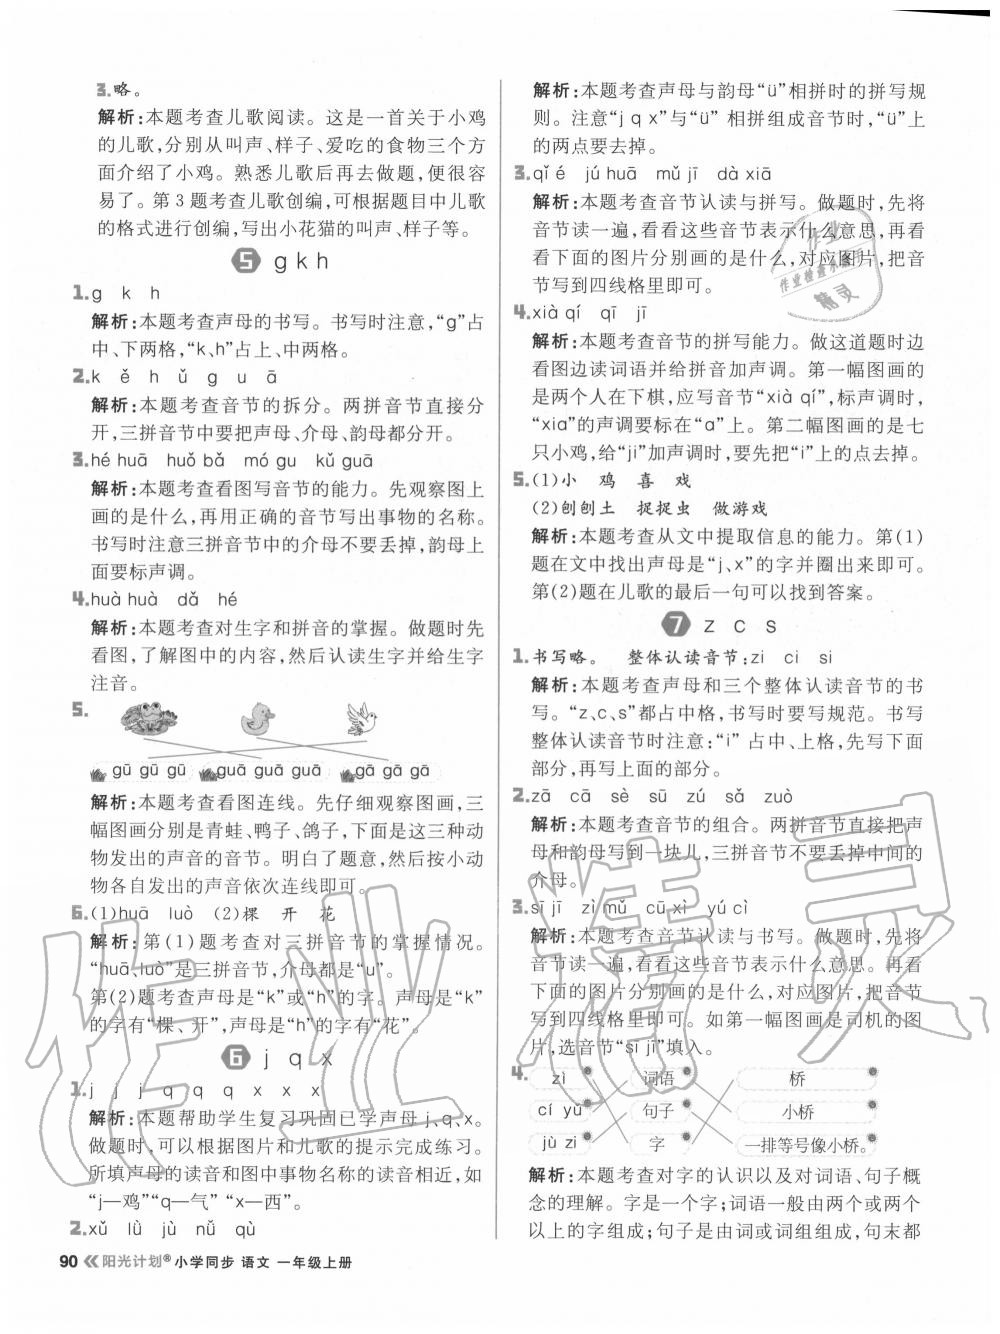 3.略。
解析:本题考查儿歌阅读。这是一首关于小鸡
的儿歌,分别从叫声、样子、爱吃的食物三个方
面介绍了小鸡。熟悉儿歌后再去做题,便很容
易了。第3题考查儿歌创编,可根据题目中儿歌
的格式进行创编,写出小花猫的叫声、样子等。
5 g k h
1.g k h
解析:本题考查声母的书写。书写时注意,“g”占
中、下两格,“k、h”占上、中两格。
2.k ě h ǔ g u ā
解析:本题考查音节的拆分。两拼音节直接分
开,三拼音节中要把声母、介母、韵母都分开。
3.hé huā huǒ bǎ mó gu kǔ guā
解析:本题考查看图写音节的能力。先观察图上
画的是什么,再用正确的音节写出事物的名称。
书写时注意三拼音节中的介母不要丢掉,韵母上
面要标声调。
4.huà huà dǎ hé
解析:本题考查对生字和拼音的掌握。做题时先
看图,了解图中的内容,然后认读生字并给生字
注音。
5.
gū gū gū guā guā guā gā gā gā
解析:本题考查看图连线。先仔细观察图画,三
幅图画分别是青蛙、鸭子、鸽子,下面是这三种动
物发出的声音的音节。明白了题意,然后按小动
物各自发出的声音依次连线即可。
6.(1)huā luò (2)棵 开 花
解析:第(1)题考查对三拼音节的掌握情况。
“huā、luò”是三拼音节,介母都是“u”。
第(2)题考查声母是“k”或“h”的字。声母是“k”
的字有“棵、开”,声母是“h”的字有“花”。
6 j q x
1.j j j q q q x x x
解析:本题帮助学生复习巩固已学声母j、q、x。
做题时,可以根据图片和儿歌的提示完成练习。
所填声母的读音和图中事物名称的读音相近,如
“j—鸡”“q—气”“x—西”。
2.xǔ lǜ jù nǚ qù
90 阳光计划® 小学同步 语文 一年级上册
解析:本题考查声母与韵母“ü”相拼时的拼写规
则。注意“j q x”与“ü” 相拼组成音节时,“ü”上
的两点要去掉。
3.qǐ é jú huā mǔ jī dà xiā
解析:本题考查音节认读与拼写。做题时,先将
音节读一遍,看看这些音节表示什么意思,再看
看下面的图片分别画的是什么,对应图片,把音
节写到四线格里即可。
4.xià qí qī jī
解析:本题考查音节的拼写能力。做这道题时边
看图边读词语并给拼音加声调。第一幅图画的
是两个人在下棋,应写音节“xià qí”,标声调时,
“xia”的声调要标在“a”上。第二幅图画的是七
只小鸡,给“ji”加声调时,要先把“i”上的点去掉。
5.(1)小 鸡 喜 戏
(2)刨刨土 捉捉虫 做游戏
解析:本题考查从文中提取信息的能力。第(1)
题在文中找出声母是“j、x”的字并圈出来即可。
第(2)题在儿歌的最后一句可以找到答案。
7 z c s
1.书写略。 整体认读音节:zi ci si
解析:本题考查声母和三个整体认读音节的书
写。“z、c、s”都占中格,书写时要写规范。书写
整体认读音节时注意:“i” 占中、上格,先写下面
部分,再写上面的部分。
2.zā cā sè sū zú sǎ zuò
解析:本题考查音节的组合。两拼音节直接把声
母和韵母写到一块儿,三拼音节不要丢掉中间的
介母。
3.sī jī zì mǔ cū xì yú cì
解析:本题考查音节认读与书写。做题时,先将
音节读一遍,看看这些音节表示什么意思。再看
下面的图片分别画的是什么,对应图片,把音节
写到四线格里即可。如第一幅图画的是司机的图
片,选音节“sī jī”填入。
4.
zì 词语 桥
cí yǔ 句子 小桥
jù zi 字 一排等号像小桥。
解析:本题考查对字的认识以及对词语、句子概
念的理解。字是一个字;词语一般由两个或两个
以上的字组成;句子是由词或词组组成,句末都
作业
作业检查小助手
精灵
作业精灵